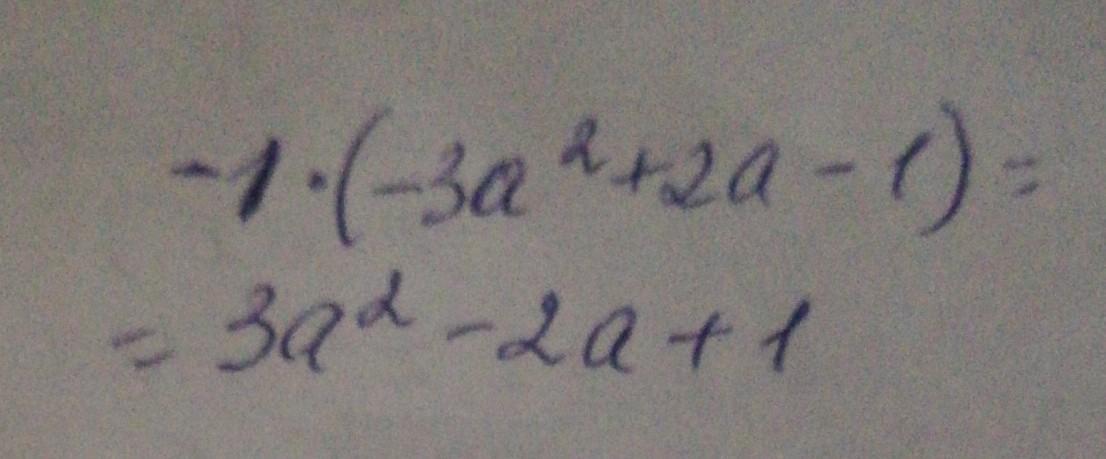 -1·(-3a²+2a-1)=
=3a²-2a+1